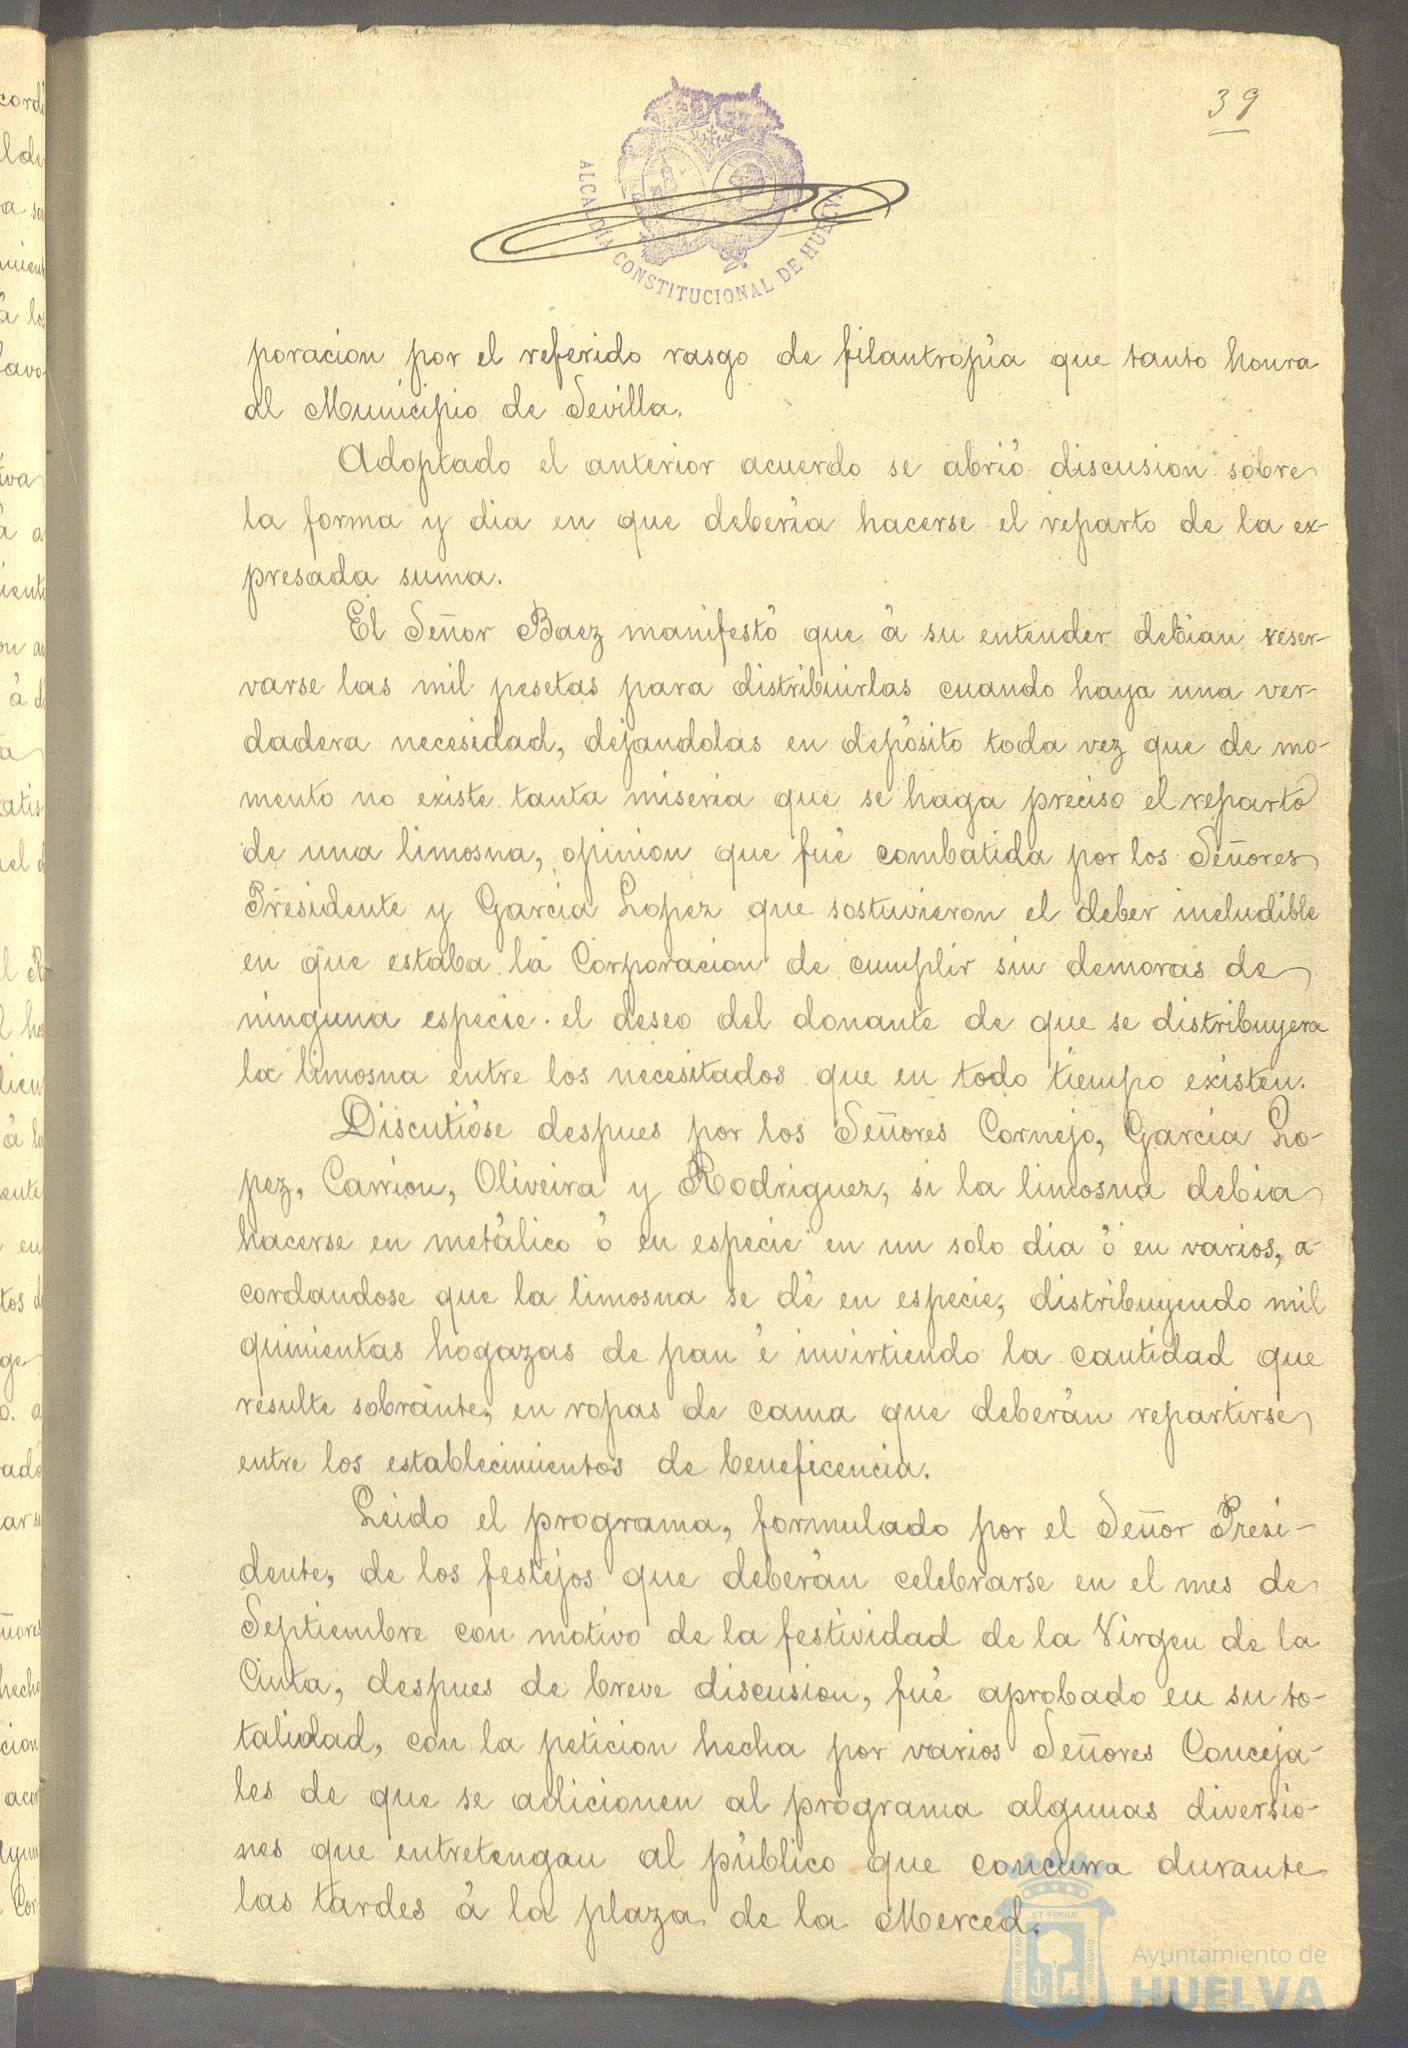 39
ALCALDIA CONSTITUCIONAL DE HUELVA
poracion por el referido rasgo de filantropia que tanto honra
al Municipio de Sevilla.
Adoptado el anterior acuerdo se abrió discusion sobre
la forma y dia en que debería hacerse el reparto de la ex-
presada suma.
El Señor Baez manifestó que á su entender debian reser-
varse las mil pesetas para distribuirlas cuando haya una ver-
dadera necesidad, dejandolas en depósito toda vez que de mo-
mento no existe tanta miseria que se haga preciso el reparto
de una limosna, opinion que fué combatida por los Señores
Presidente y García Lopez que sostuvieron el deber ineludible
en que estaba la Corporacion de cumplir sin demoras de
ninguna especie el deseo del donante de que se distribuyera
la limosna entre los necesitados que en todo tiempo existen.
Discutióse despues por los Señores Cornejo, García Lo-
pez, Carrion, Oliveira y Rodriguez, si la limosna debia
hacerse en metálico ó en especie en un solo dia ó en varios, a-
cordandose que la limosna se dé en especie, distribuyendo mil
quinientas hogazas de pan é invirtiendo la cantidad que
resulte sobrante, en ropas de cama que deberán repartirse
entre los establecimientos de beneficencia.
Leido el programa, formulado por el Señor Presi-
dente, de los festejos que deberán celebrarse en el mes de
Septiembre con motivo de la festividad de la Virgen de la
Cinta, despues de breve discusion, fué aprobado en su to-
talidad, con la peticion hecha por varios Señores Conceja-
les de que se adicionen al programa algunas diversio-
nes que entretengan al público que concurra durante
las tardes á la plaza de la Merced.
Ayuntamiento de
HUELVA